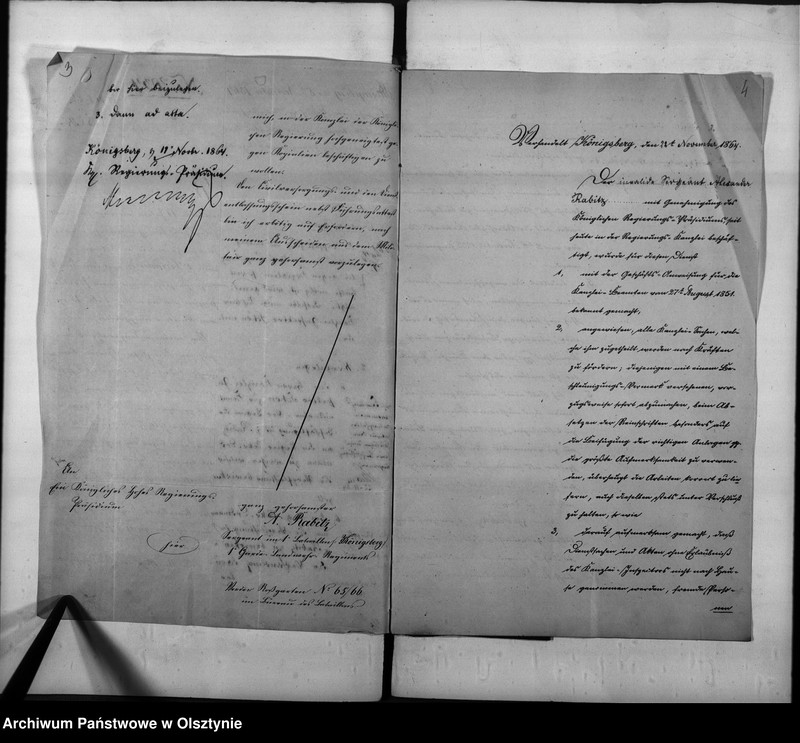 3
bei hier beizulegen.
3. dann ad acta.
Königsberg, d. 11. Novb. 1864.
Kg. Regierungs-Präsidium.
mich in der Kanzlei der Königli-
chen Regierung hochgeneigtest ge-
gen Remuneration beschäftigen zu
wollen.
Den Civilversorgungs- und den
entlassungsschein nebst Führungsattest
bin ich erbötig auf Erfordern, nach
meinem Ausscheiden aus dem Mili-
tair ganz gehorsamst vorzulegen.
An
Ein Königliches Hohes Regierungs-
Präsidium
hier
ganz gehorsamster
A. Rabitz
Sergeant im 1. Bataillon (Königsberg)
1. Garde-Landwehr-Regiments
Roßgarten No 65/66
im Bureau des Bataillons
4
Verhandelt Königsberg, den November 1864.
Der invalide Sergeant Alexander
Rabitz mit Genehmigung des
Königlichen Regierungs-Präsidiums, seit
heute in der Regierungs-Kanzlei beschäf-
tigt, wurde für diesen Dienst
1, mit der Geschäfts-Anweisung für die
Kanzlei-Beamten vom 27t August 1851.
bekannt gemacht,
2, angewiesen, alle Kanzlei-Sachen, wel-
che ihm zugetheilt werden nach Kräften
zu fördern; diejenigen mit einem Be-
schleunigungs-Vermerk versehenen, vor-
zugsweise sofort abzumachen, beim Ab-
setzen der Reinschriften besonders auf
die Beifügung der richtigen Anlagen pp.
die größte Aufmerksamkeit zu verwen-
den, überhaupt die Arbeiten korrect zu lie-
fern, auch dieselben stets unter Verschluß
zu halten, so wie
3, darauf aufmerksam gemacht, daß
Dienstsachen und Akten, ohne Erlaubniß
des Kanzlei-Inspektors nicht nach Hau-
se genommen werden, fremde Perso-
nen
Archiwum Państwowe w Olsztynie